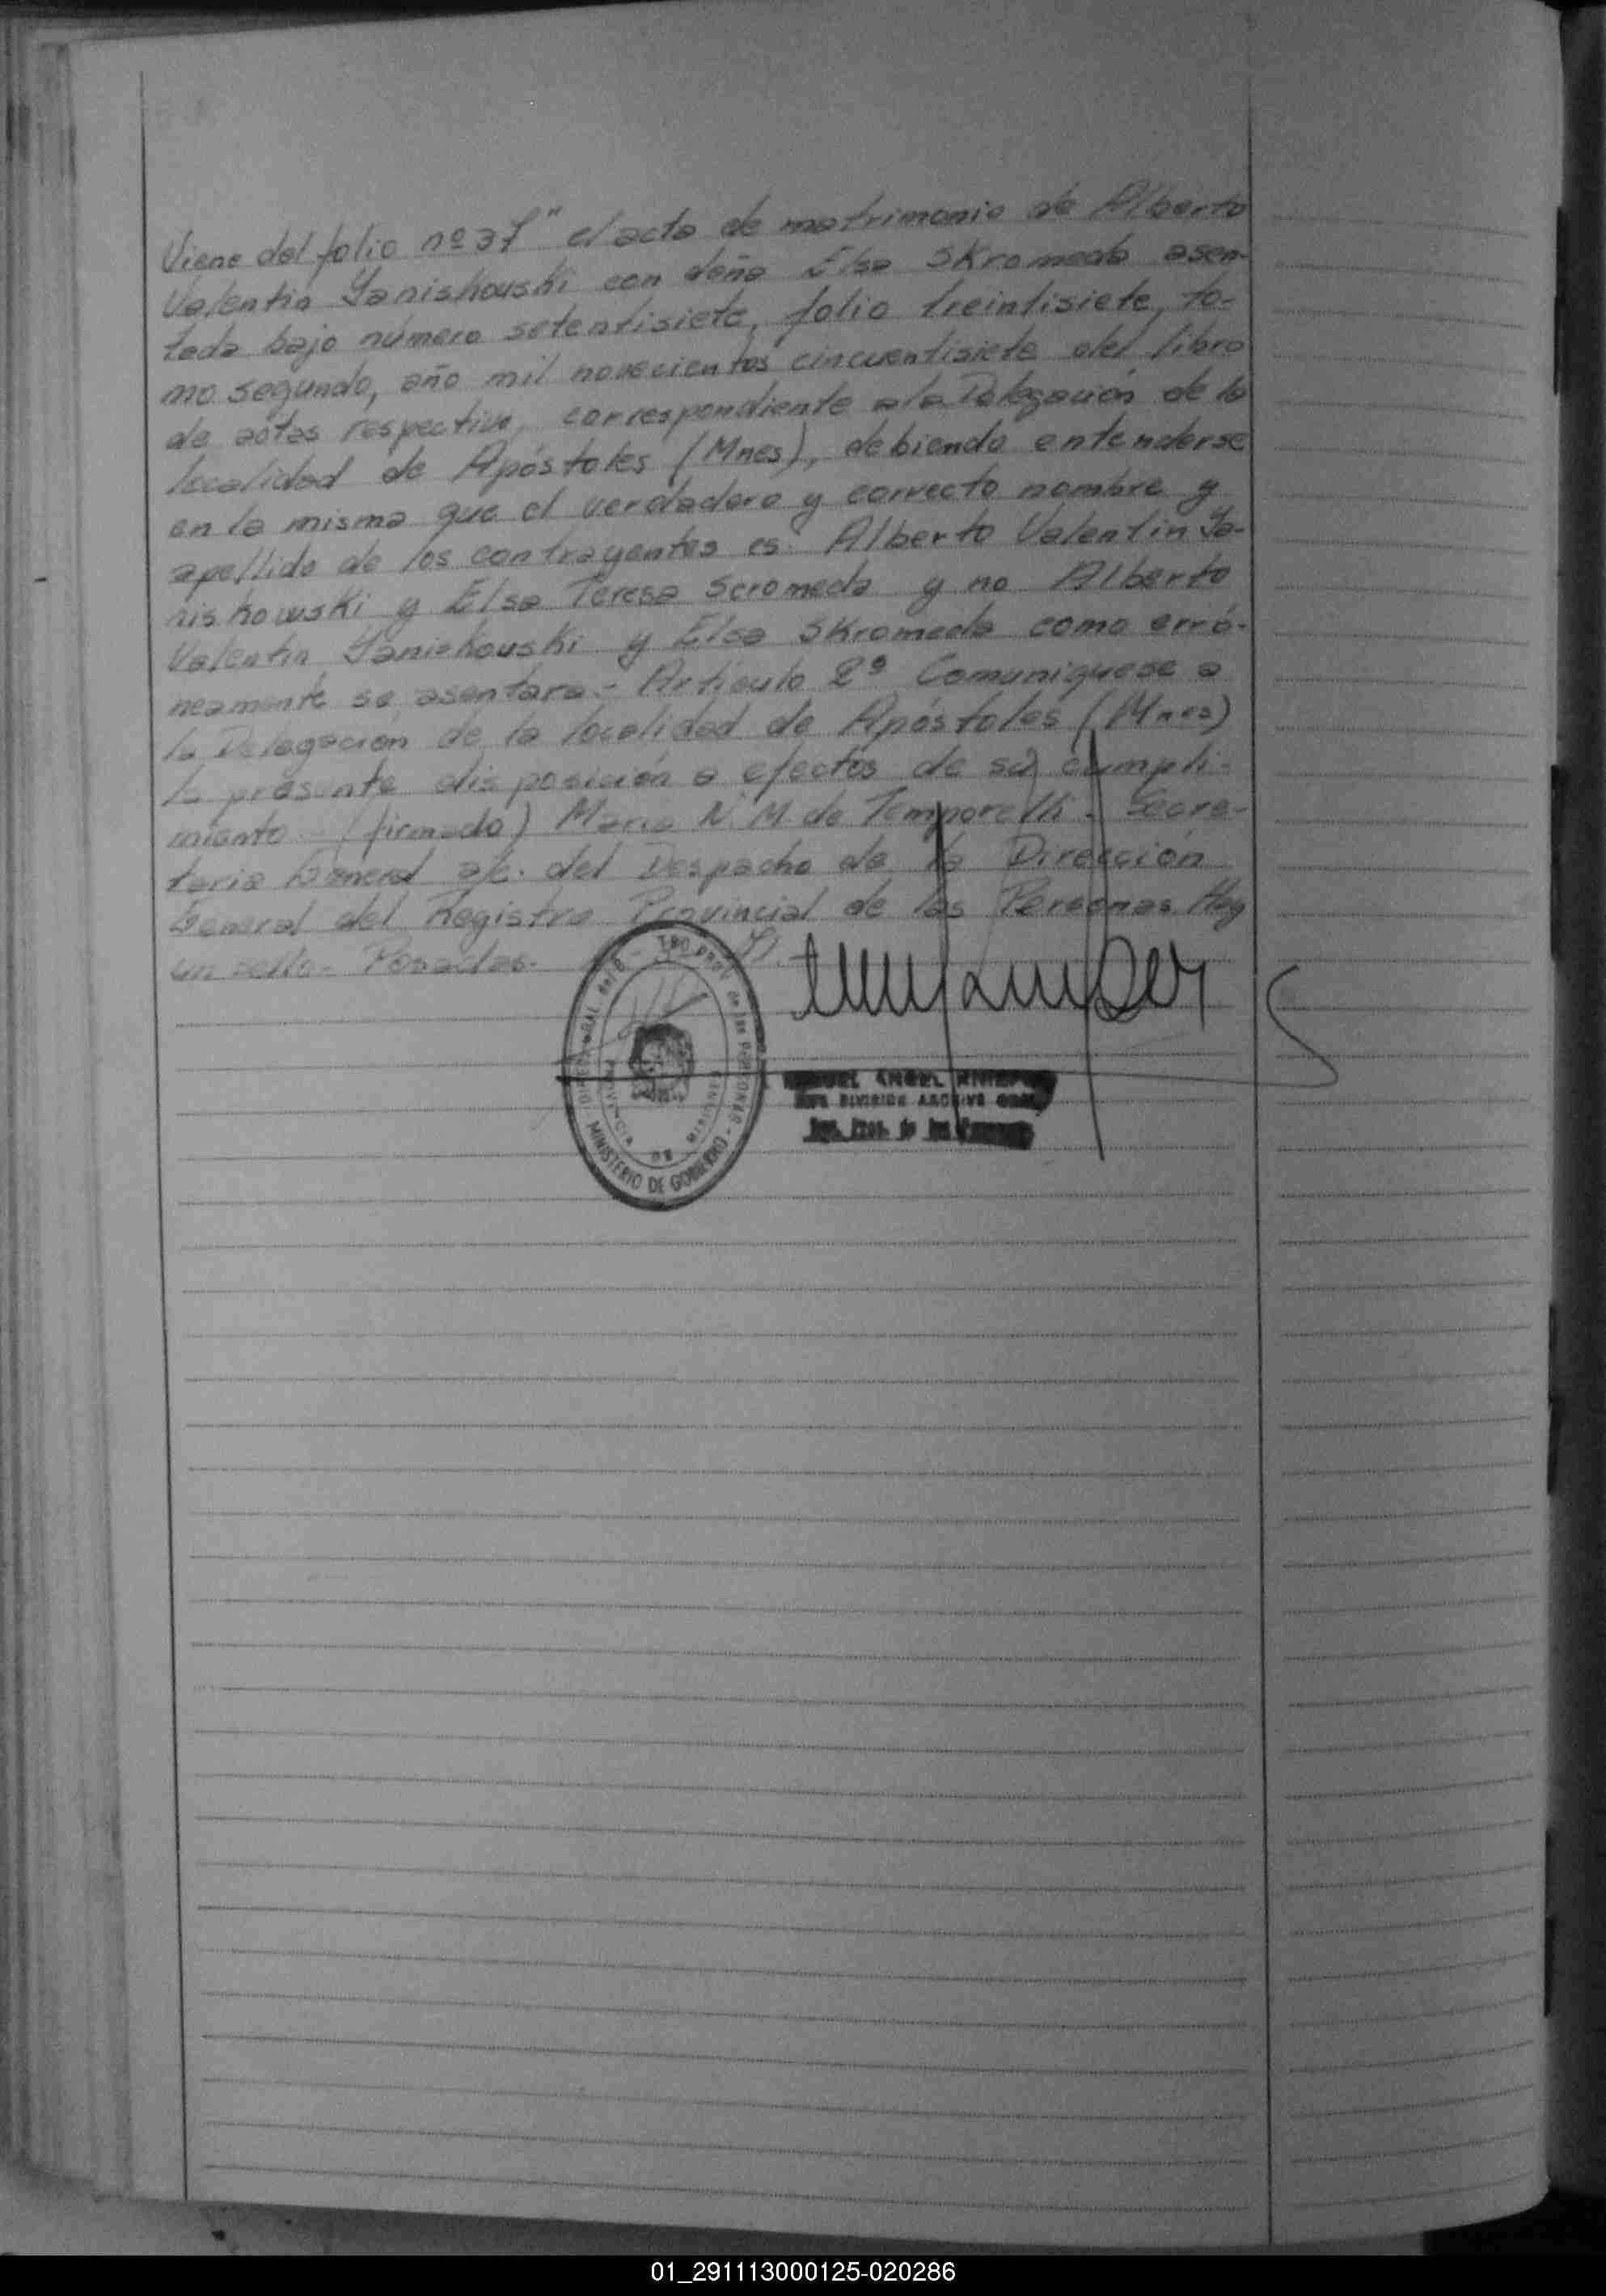 Viene del folio nº 37" el acta de matrimonio de Alberto
Valentin Yanishouski con doña Elsa Skromeda asen-
tada bajo número setentisiete, folio treintisiete, to-
mo segundo, año mil novecientos cincuentisiete del libro
de actas respectivo, correspondiente a la Delegación de la
localidad de Apóstoles (Mnes), debiendo entenderse
en la misma que el verdadero y correcto nombre y
apellido de los contrayentes es: Alberto Valentin Ya-
niskowski y Elsa Teresa Scromeda y no Alberto
Valentin Yanishouski y Elsa Skromeda como erró-
neamente se asentara.- Articulo 2º Comuniquese a
la Delegación de la localidad de Apóstoles (Mnes)
la presente disposición a efectos de su cumpli-
miento.- (firmado) Maria N. M. de Temporelli - Secre-
taria General a/c. del Despacho de la Dirección
General del Registro Provincial de las Personas. Hay
un sello.- Posadas.
GRAL. del R - Prov. de las PERSONAS - MINISTERIO DE GOBIERNO
PROVINCIA DE MISIONES
ANGEL
DIVISION ARCHIVO GRAL.
Prov. de las
01_291113000125-020286